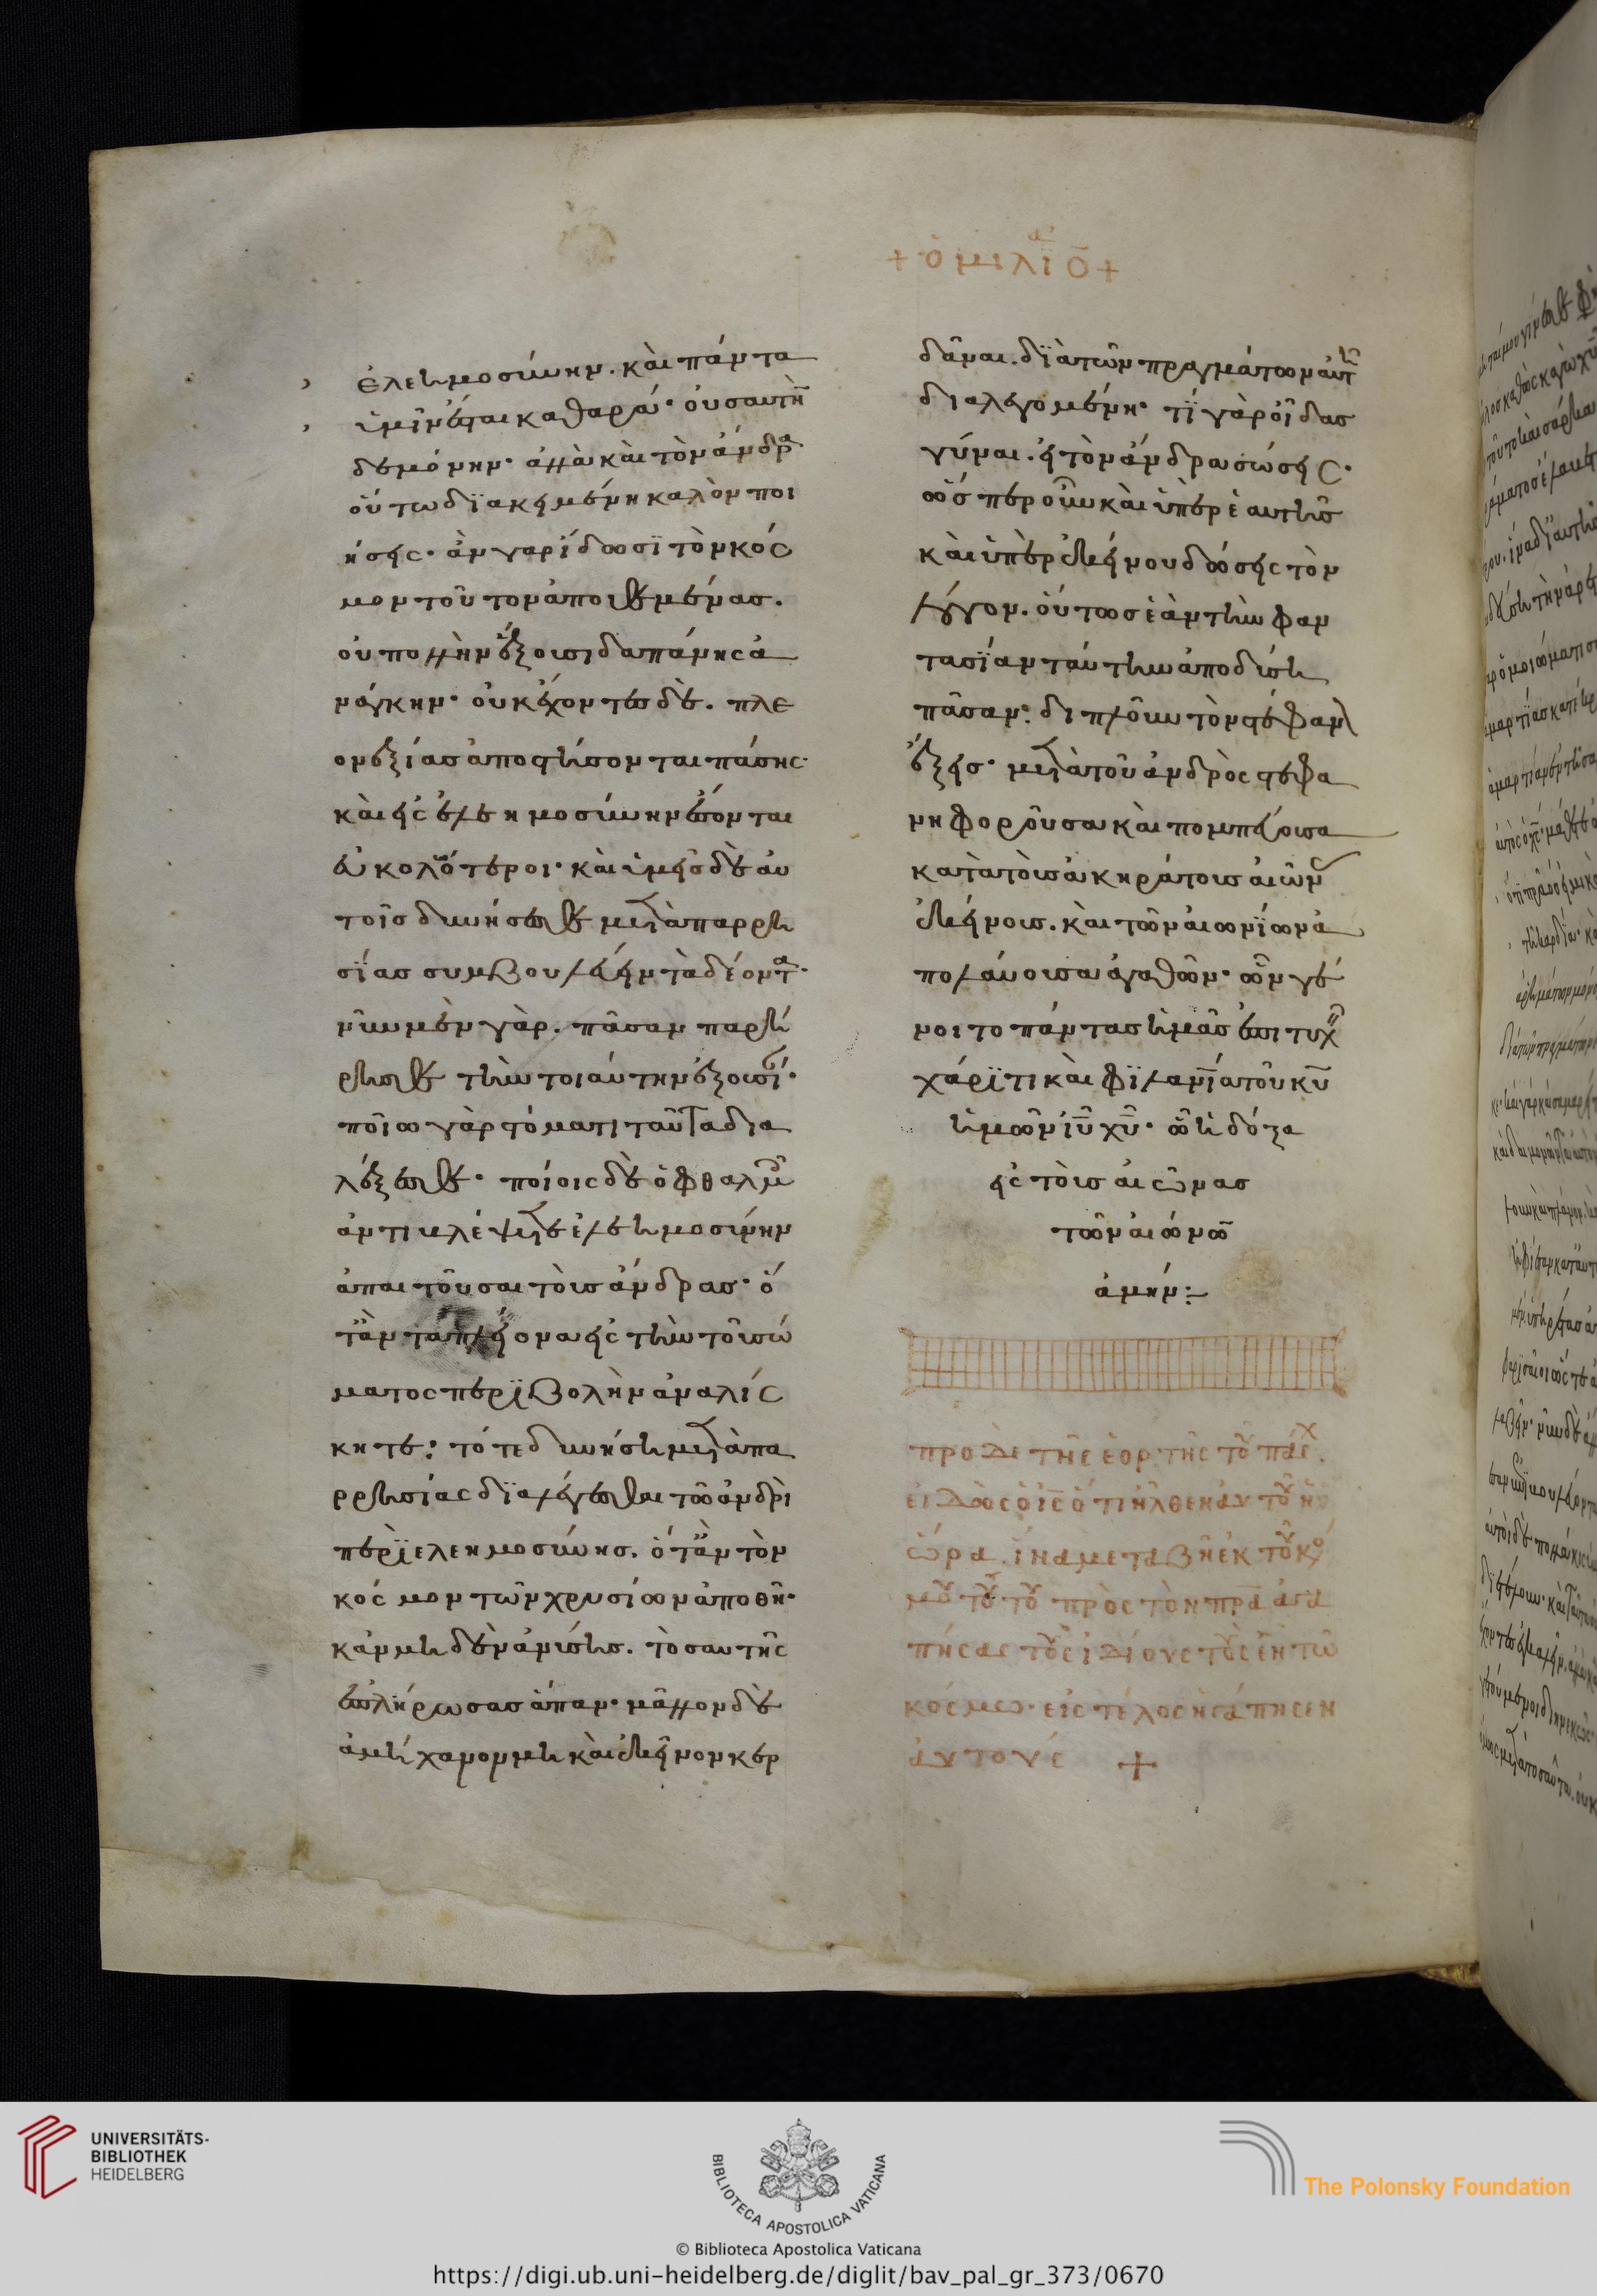 + ὁμιλίαι ο̅ +
ἐλεημοσύνην. καὶ πάντα
ὑμῖν ἔσται καθαρά· οὐ σαυτὴν
δὲ μόνην· ἀλλὰ καὶ τὸν ἄνδρα
οὕτω διακειμένη καλὸν ποι
ήσεις· ἂν γὰρ ἴδωσι τὸν κόσ
μον τοῦτον ἀποθεμένας.
οὐ πολλὴν ἕξουσι δαπάνης ἀ
νάγκην· οὐκ ἔχοντες δὲ. πλε
ονεξίας ἀποστήσονται πάσης·
καὶ εἰς ἐλεημοσύνην ἔσονται
εὐκολώτεροι· καὶ ὑμεῖς δὲ αὐ
τοῖς δυνήσεσθε μετὰ παρρη
σίας συμβουλεύειν τὰ δέοντα·
νῦν μὲν γὰρ. πᾶσαν παρῄ
ρησθε τὴν τοιαύτην ἐξουσί·
ποίω γὰρ στόματι ταῦτα δια
λέξεσθε· ποίοις δὲ ὀφθαλμοῖς
ἀντιβλέψητε ἐλεημοσύνην
ἀπαιτοῦσαι τοὺς ἄνδρας· ὅ
τ᾽ἂν τὰ πλείονα εἰς τὴν τοῦ σώ
ματος περιβολὴν ἀναλίς
κητε: τότε δυνήση μετὰ πα
ρρησίας διαλέγεσθαι τῶ ἀνδρὶ
περὶ ελεημοσύνης. ὅτ᾽ἂν τὸν
κόσμον τῶν χρυσίων ἀποθῆ·
κἂν μηδὲν ἀνύσης. τὸ σαυτῆς
ἐπλήρωσας ἅπαν· μᾶλλον δὲ
ἀμήχανον μὴ καὶ ἐκεῖνον κερ
δᾶναι. δι᾽ ἀτῶν πραγμάτων αὐτῆς
διαλεγομένη· τί γὰρ οἶδας
γύναι. εἰ τὸν ἄνδρα σώσεις·
ὥσπερ οὖν καὶ ὑπὲρ ἑαυτῆς
καὶ ὑπὲρ ἐκείνου δώσεις τὸν
λόγον. οὕτως ἐὰν τὴν φαν
τασίαν ταύτην ἀποδύση
πᾶσαν: διπλοῦν τὸν στέφανον
ἕξεις· μετὰ τοῦ ἀνδρὸς στεφα
νηφοροῦσα καὶ πομπεύουσα
κατὰ τοὺς ἀκηράτους αἰῶνας
ἐκείνους. καὶ τῶν αἰωνίων ἀ
πολαύουσα ἀγαθῶν· ὧν γέ
νοιτο πάντας ἡμᾶς ἐπιτυχεῖν
χάριτι καὶ φιλανίᾳ τοῦ κυ
ἡμῶν ιυ χυ· ᾧ ἡ δόξα
εἰς τοὺς αἰῶνας
τῶν αἰώνων
ἀμήν:—
προ δὲ τῆς ἑορτῆς τοῦ πάσχ.
εἰδὼς ὁ ις ὅτι ἦλθεν αὐτοῦ ἡ
ὥρα. ἵνα μεταβῆ ἐκ τοῦ κό
μου τούτου πρὸς τὸν πρα ἀγα
πήσας τοὺς ἰδίους τοὺς ἐν τῶ
κόσμω. εἰς τέλος ἠγάπησεν
αὐτούς +
UNIVERSITÄTS-
BIBLIOTHEK
HEIDELBERG
BIBLIOTECA APOSTOLICA VATICANA
The Polonsky Foundation
© Biblioteca Apostolica Vaticana
https://digi.ub.uni-heidelberg.de/diglit/bav_pal_gr_373/0670